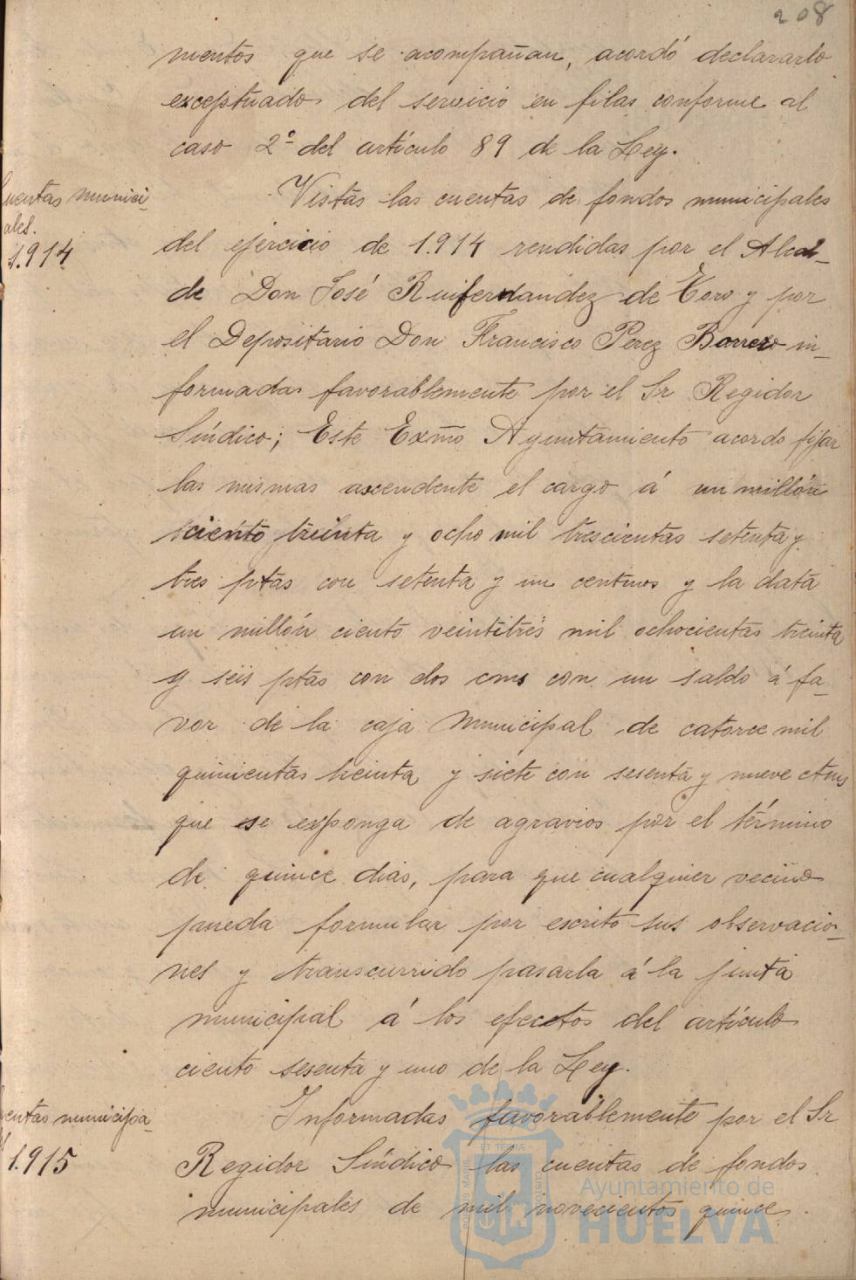 208
mentos que se acompañan, acordó declararlo
exceptuado del servicio en filas conforme al
caso 2º del artículo 89 de la Ley.
Cuentas munici-
ales.
1.914
Vistas las cuentas de fondos municipales
del ejercicio de 1.914 rendidas por el Alcal-
de Don José Ruifernandez de Toro y por
el Depositario Don Francisco Perez Borrero in-
formadas favorablemente por el Sr Regidor
Síndico; Este Exmo Ayuntamiento acordo fijar
las mismas ascendente el cargo á un millón
ciento treinta y ocho mil trescientas setenta y
tres ptas con setenta y un centimos y la data
un millón ciento veintitrés mil ochocientas treinta
y seis ptas con dos cms con un saldo á fa-
vor de la caja municipal de catorce mil
quinientas treinta y siete con sesenta y nueve ctms
que se exponga de agravios por el término
de quince dias, para que cualquier vecino
pueda formular por escrito sus observacio-
nes y transcurrido pasarla á la junta
municipal á los efectos del artículo
ciento sesenta y uno de la Ley.
entas municipa-
1.915
Informadas favorablemente por el Sr
Regidor Síndico las cuentas de fondos
municipales de mil novecientos quince
Ayuntamiento de
HUELVA